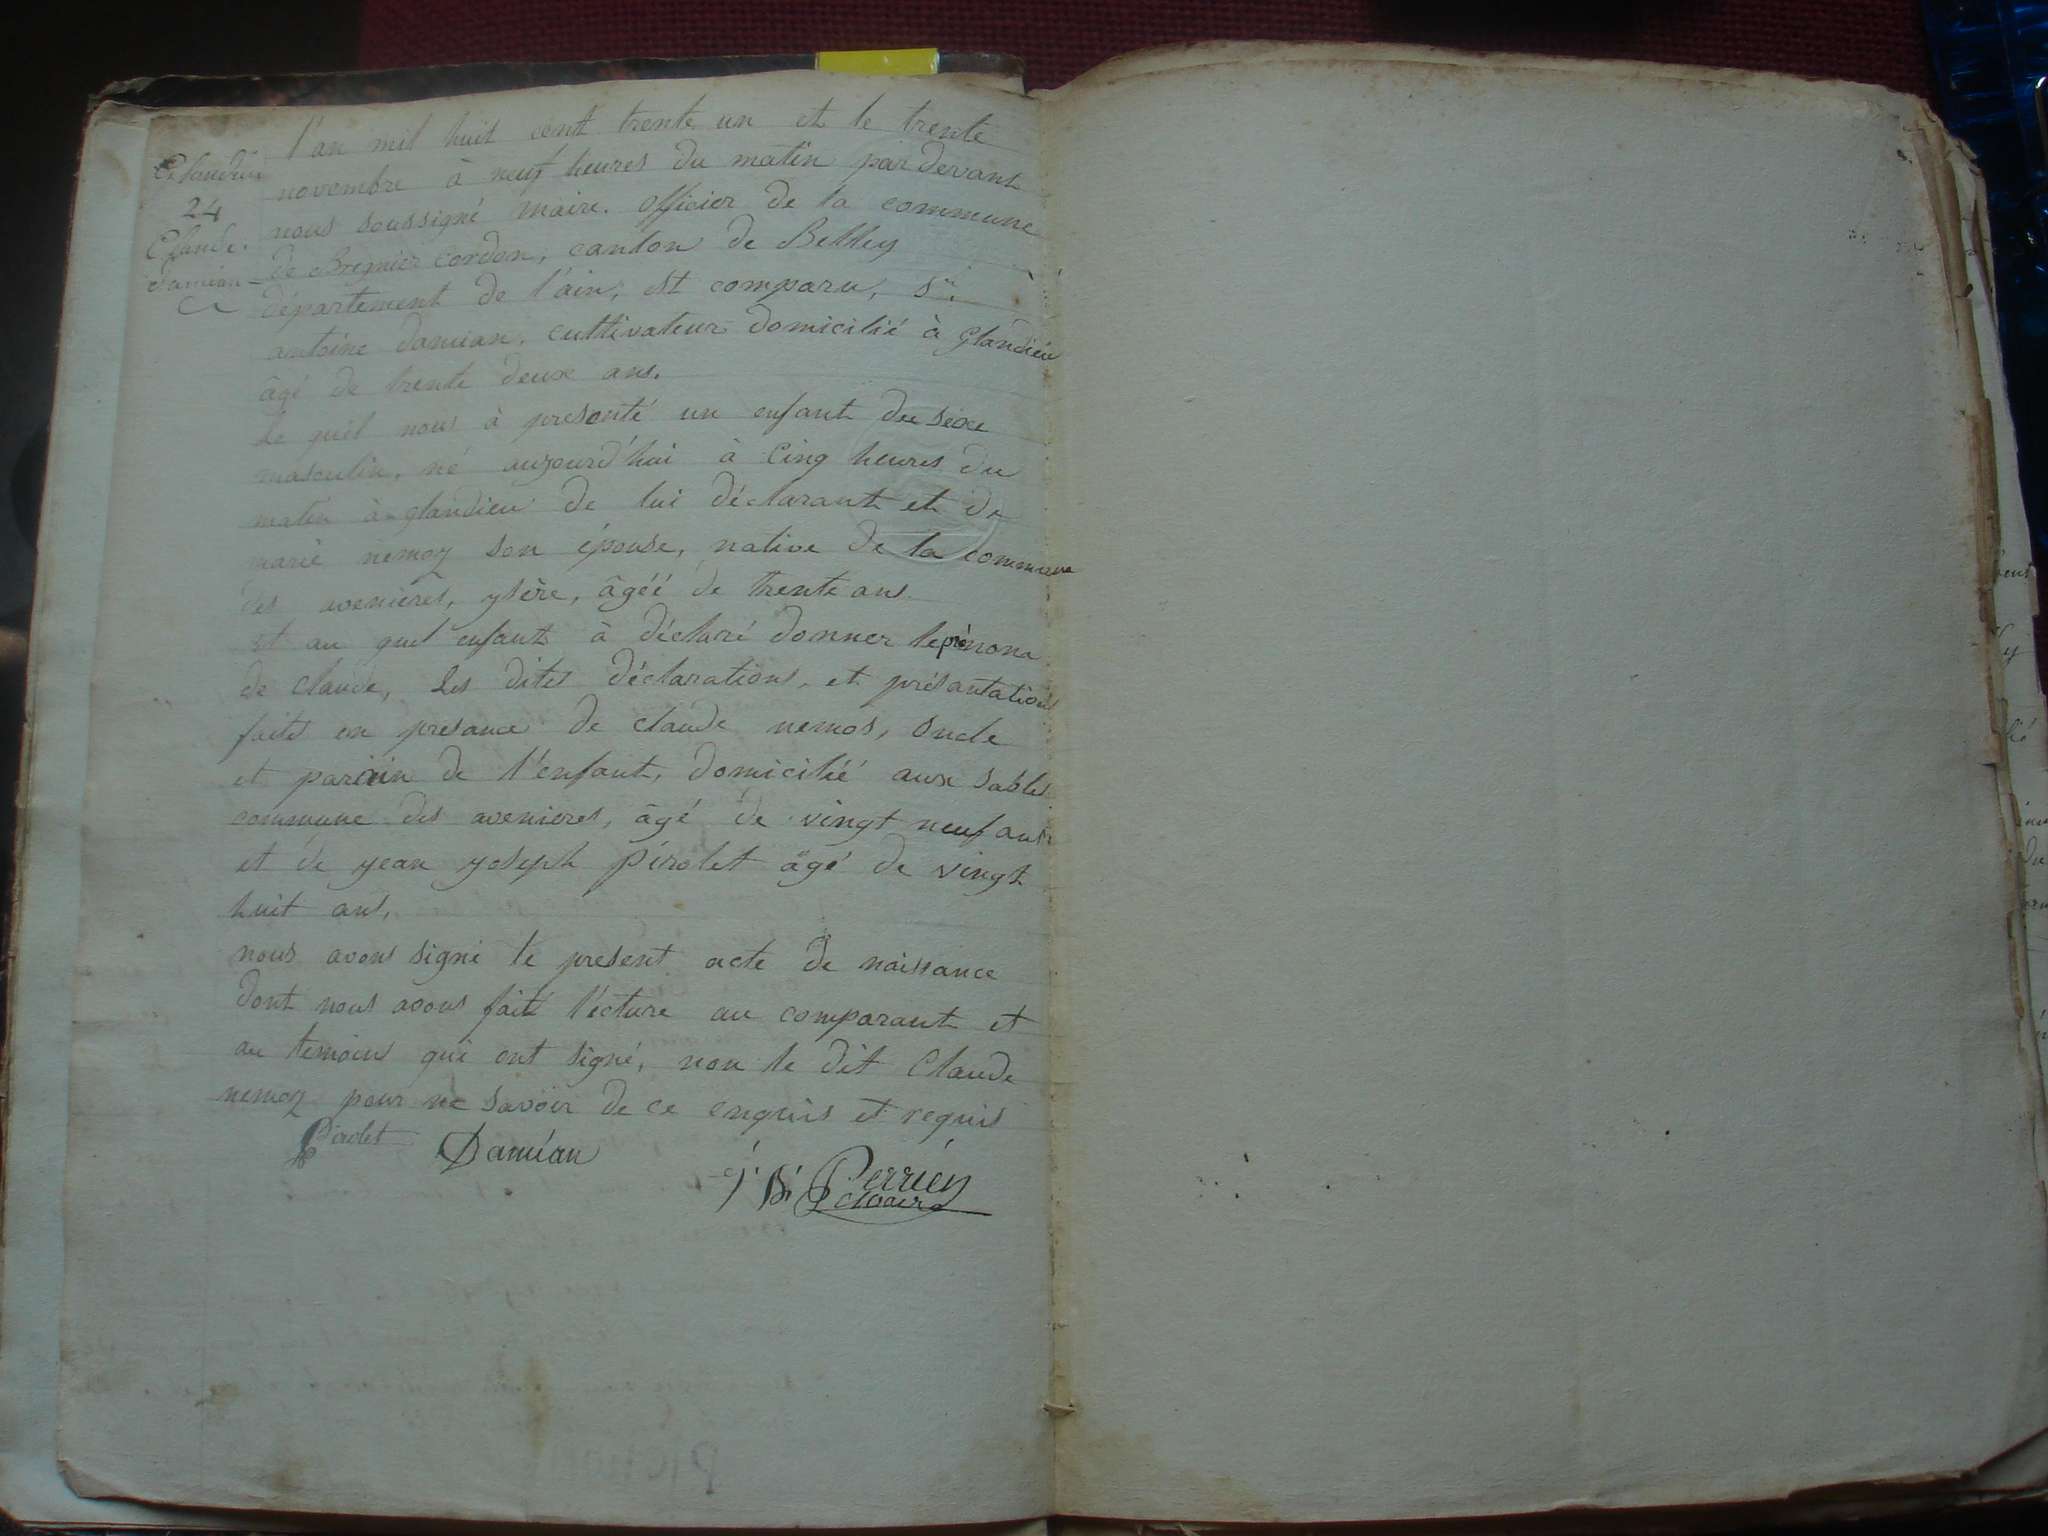 Glandieu
24
Claude
Damian
l'an mil huit cent trente un et le trente
novembre à neuf heures du matin par devant
nous soussigné maire. officier de la commune
de Bremier cordon, canton de Belley
département de l'ain, est comparu, Sr.
antoine damian, cultivateur domicilié à glandieu
âgé de trente deux ans.
le quel nous à presenté un enfant du sexe
masculin, né aujourd'hui à cinq heures du
matin à glandieu de lui déclarant et de
marie nemoz son épouse, native de la commune
des avenieres, ysère, âgéé de trente ans
et au quel enfant à déclaré donner le prénom
de claude, les dites déclarations, et présantations
faites en presance de claude nemos, oncle
et parain de l'enfant, domicilié aux sables
commune des avenieres, âgé de vingt neuf ans
et de jean joseph pirolet âgé de vingt
huit ans,
nous avons signé le present acte de naissance
dont nous avons fait l'écture au comparant et
au temoins qui ont signé, non le dit Claude
nemoz pour ne savoir de ce enquis et requis
Pirolet Damian
J. B. Perrien